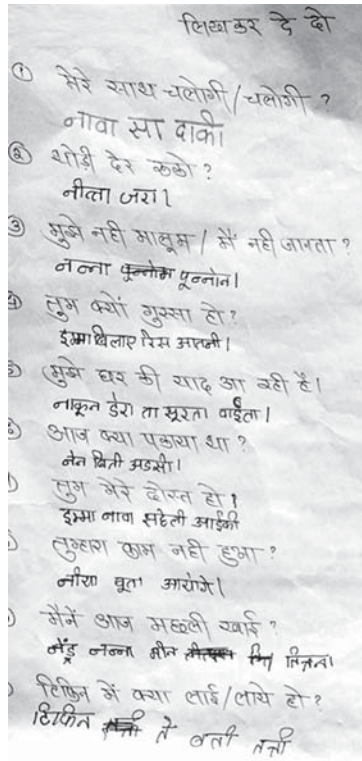 लिखकर दे दो
① मेरे साथ चलोगी/चलोगी ?
नावा सा दाकी
② थोड़ी देर रूको ?
नीत्ता जरा।
③ मुझे नही मालूम / मैं नही जानता ?
नन्ना पून्नोन।
④ तुम क्यों गुस्सा हो ?
इम्मा बिलाए रिस आतनी।
मुझे घर की याद आ रही है।
नाकून डेरा ता सूरता वाईता।
आज क्या पकाया था ?
नेन बिती अडसी।
तुम मेरे दोस्त हो।
इम्मा नावा सहेली आईकी
तुम्हारा काम नही हुआ ?
नीया बूता आयोगे।
मैनें आज मछली खाई ?
नेंड्र नन्ना मीन तिन्नतन।
टिफिन में क्या लाई/लाये हो ?
टिफिन ते बती तत्ती